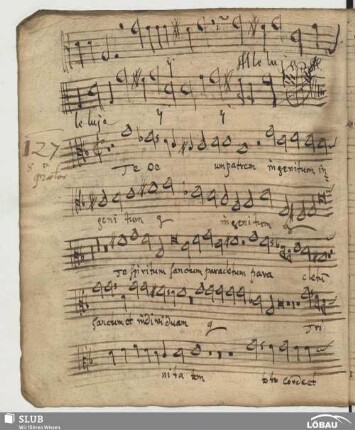 Alle lu
le luja ÿ ÿ
127
Te De um patrem ingenitum in
geni tum ingenitum
Te spiritum sanctum paracletum para cletum
sanctam et individuam Tri
nita tem toto corde et
SLUB
Wir führen Wissen.
LÖBAU